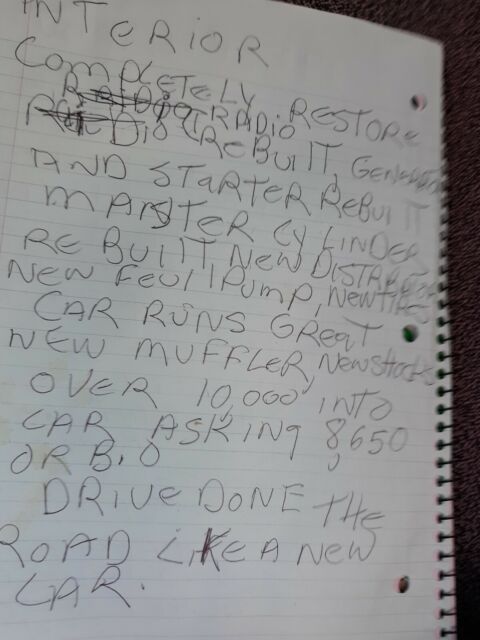 INTERIOR
COMPLETELY RESTORE
RADIO
REBUILT, GENERATOR
AND STARTER REBUILT
MASTER CYLINDER
REBUILT NEW DISTRIBUTOR
NEW FEUL PUMP, NEW TIRES
CAR RUNS GREAT
NEW MUFFLER, NEW SHOCKS
OVER 10,000 INTO
CAR ASKING 8,650
OR B.O
DRIVE DONE THE
ROAD LIKE A NEW
CAR.